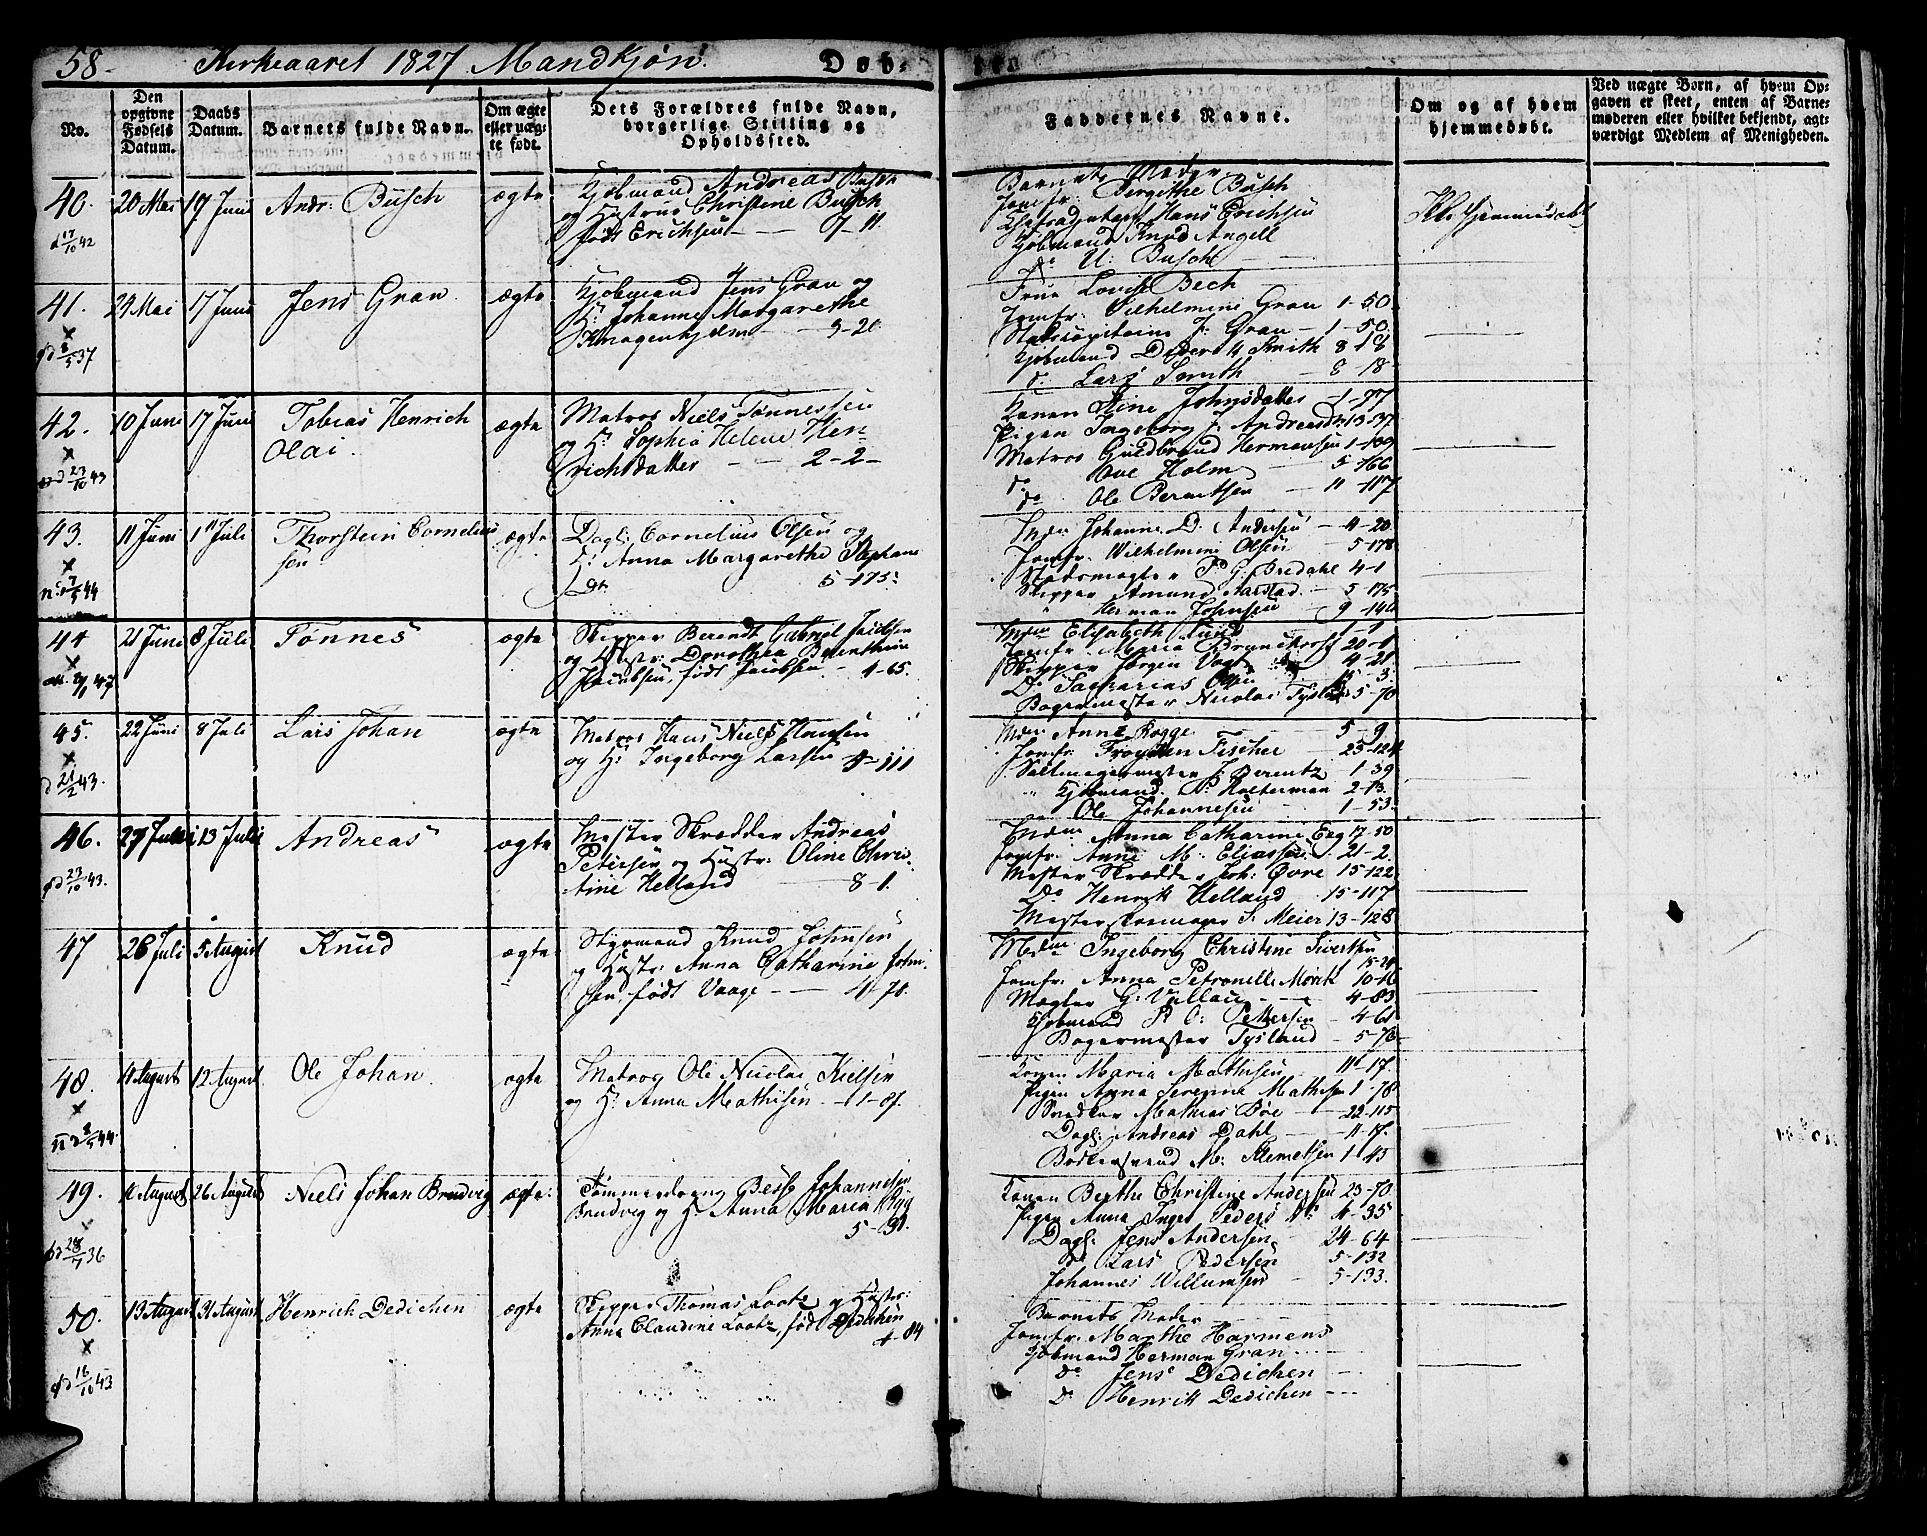 58. Kirkeaaret 1827 Mandkjøn. Døb-
No.
Den opgivne Fødsels Datum.
Daabs Datum.
Barnets fulde Navn.
Om ægte eller uægte født.
Dets Forældres fulde Navn, borgerlige Stilling og Opholdssted.
Faddernes Navne.
Om og af hvem hjemmedøbt.
Ved uægte Børn, af hvem Opgaven er skeet, enten af Barnemoderen eller hvilket bekjendt, agtværdigt Medlem af Menigheden.
40. 20 Mai 17 Juni Andr: Busch ægte
Kjøbmand Andreas Busch
og Hustrue Christine Busch
født Erichsen 7-11
Barnets Moder
Jomfr: Bergithe Busch
Hans Erichsen
Kjøbmand Knud Angell
do U: Busch
41. 24 Mai 17 Juni Jens Gran ægte
Kjøbmand Jens Gran og
H: Johanne Margarethe
Krogenhjelm 9-20
Frue Lovise Bech
Jomfr: Wilhelmine Gran 1-50
J: Gran 1-50
Kjøbmand Diderik Smith 8-18
do Lars Smith 8-18
42. 10 Juni 17 Juni Tobias Henrich
Olai. ægte
Matros Niels Tønnessen
og H: Sophia Helene Hen-
richsdatter 2-2
Konen Stine Johnsdatter 1-77
Pigen Ingeborg J: Andreasdr: 13-37
Matros Guldbrand Hermansen 1-109
do Ove Holm 5-166
do Ole Berentsen 11-117
43. 11 Juni 1 Juli Thorstein Cornelius
sen ægte
Dagl: Cornelius Olsen og
H: Anna Margarethe Stephans
Dtr. 5-175
Mdm Johanne D. Andersen 4-20
Jomfr: Wilhelmine Olsen 5-178
Stadsmægler P. G. Bredahl 4-1
Skipper Amund Aarstad 5-175
Herman Johnsen 9-146
44 21 Juni 8 Juli Tønnes ægte
Skipper Berendt Gabriel Jacobsen
og Hustr: Dorothea Berenthine
Jacobsen, født Jacobsen 4-65
Mdm Elisabeth Lund 1-1
Jomfr: Maria Brunchorst 20-1
Skipper Jørgen Vogt 4-21
Do Sacharias Olsen 15-3
Bagermester Nicolai Tysland 5-70
45. 22 Juni 8 Juli Lars Johan ægte
Matros Hans Niels Hansen
og H: Ingeborg Larsen 4-111
Mdm Anne Rogge 5-9
Jomfr: Frogden Fischer 23-124
J. Berentz 1-39
Kjøbmand N: Kalterman 2-13
Ole Johannesen 1-53
46. 27 Juni 13 Juli Andreas ægte
Mester Skrædder Andreas
Petersen og Hustr: Oline Chris-
tine Helland 8-1.
Mdm Anna Catharine Eeg 17-50
Jomfr: Anne M: Eliassen 21-2
Mester Skrædder Joh: Øvre 15-122
Do Henrik Helland 15-117
Mester Skomager S: Meier 13-128
47 26 Juli 5 August Knud ægte
Styrmand Knud Johnsen
og Hustr: Anna Catharine John-
sen, født Vaage 4-70.
Mdm Ingeborg Christine Sivertsen
15-24
Jomfr: Anna Petronelle Mørk 10-16
Mægler G: Vallau 4-83
Kjøbmand R O: Pettersen 4-61
Bagermester Tysland 5-70
48. 4 August 12 August Ole Johan ægte
Matros Ole Nicolai Nielsen
og H: Anna Mathisen 1-87.
Konen Maria Mathisen 11-17.
Pigen Anna Serine Mathisen 1 78
Snedker Mathias Bøe 22-115
Dagl: Andreas Dahl 11-17.
Bødkersvend M: Klemetsen 1 45
49. 11 August 26 August Niels Johan Brudvig ægte
Tømmerdreng Besse Johannesen
Brudvig og H: Anna Maria Krog
5-131.
Konen Berthe Christine Andersen 23-70.
Pigen Anna Inger Peders Dr: 4-35
Dagl: Jens Andersen 24-64
do Lars Pedersen 5-132
Johannes Willumsen 5-133.
50. 13 August 31 August Henrich Dedichen ægte
Skipper Thomas Lootz og Hustr:
Anne Claudine Lootz, født Dedichen
4-84
Barnets Moder
Jomfr: Marthe Harmens
Kjøbmand Herman Gran
do Jens Dedichen
Do Henrik Dedichen